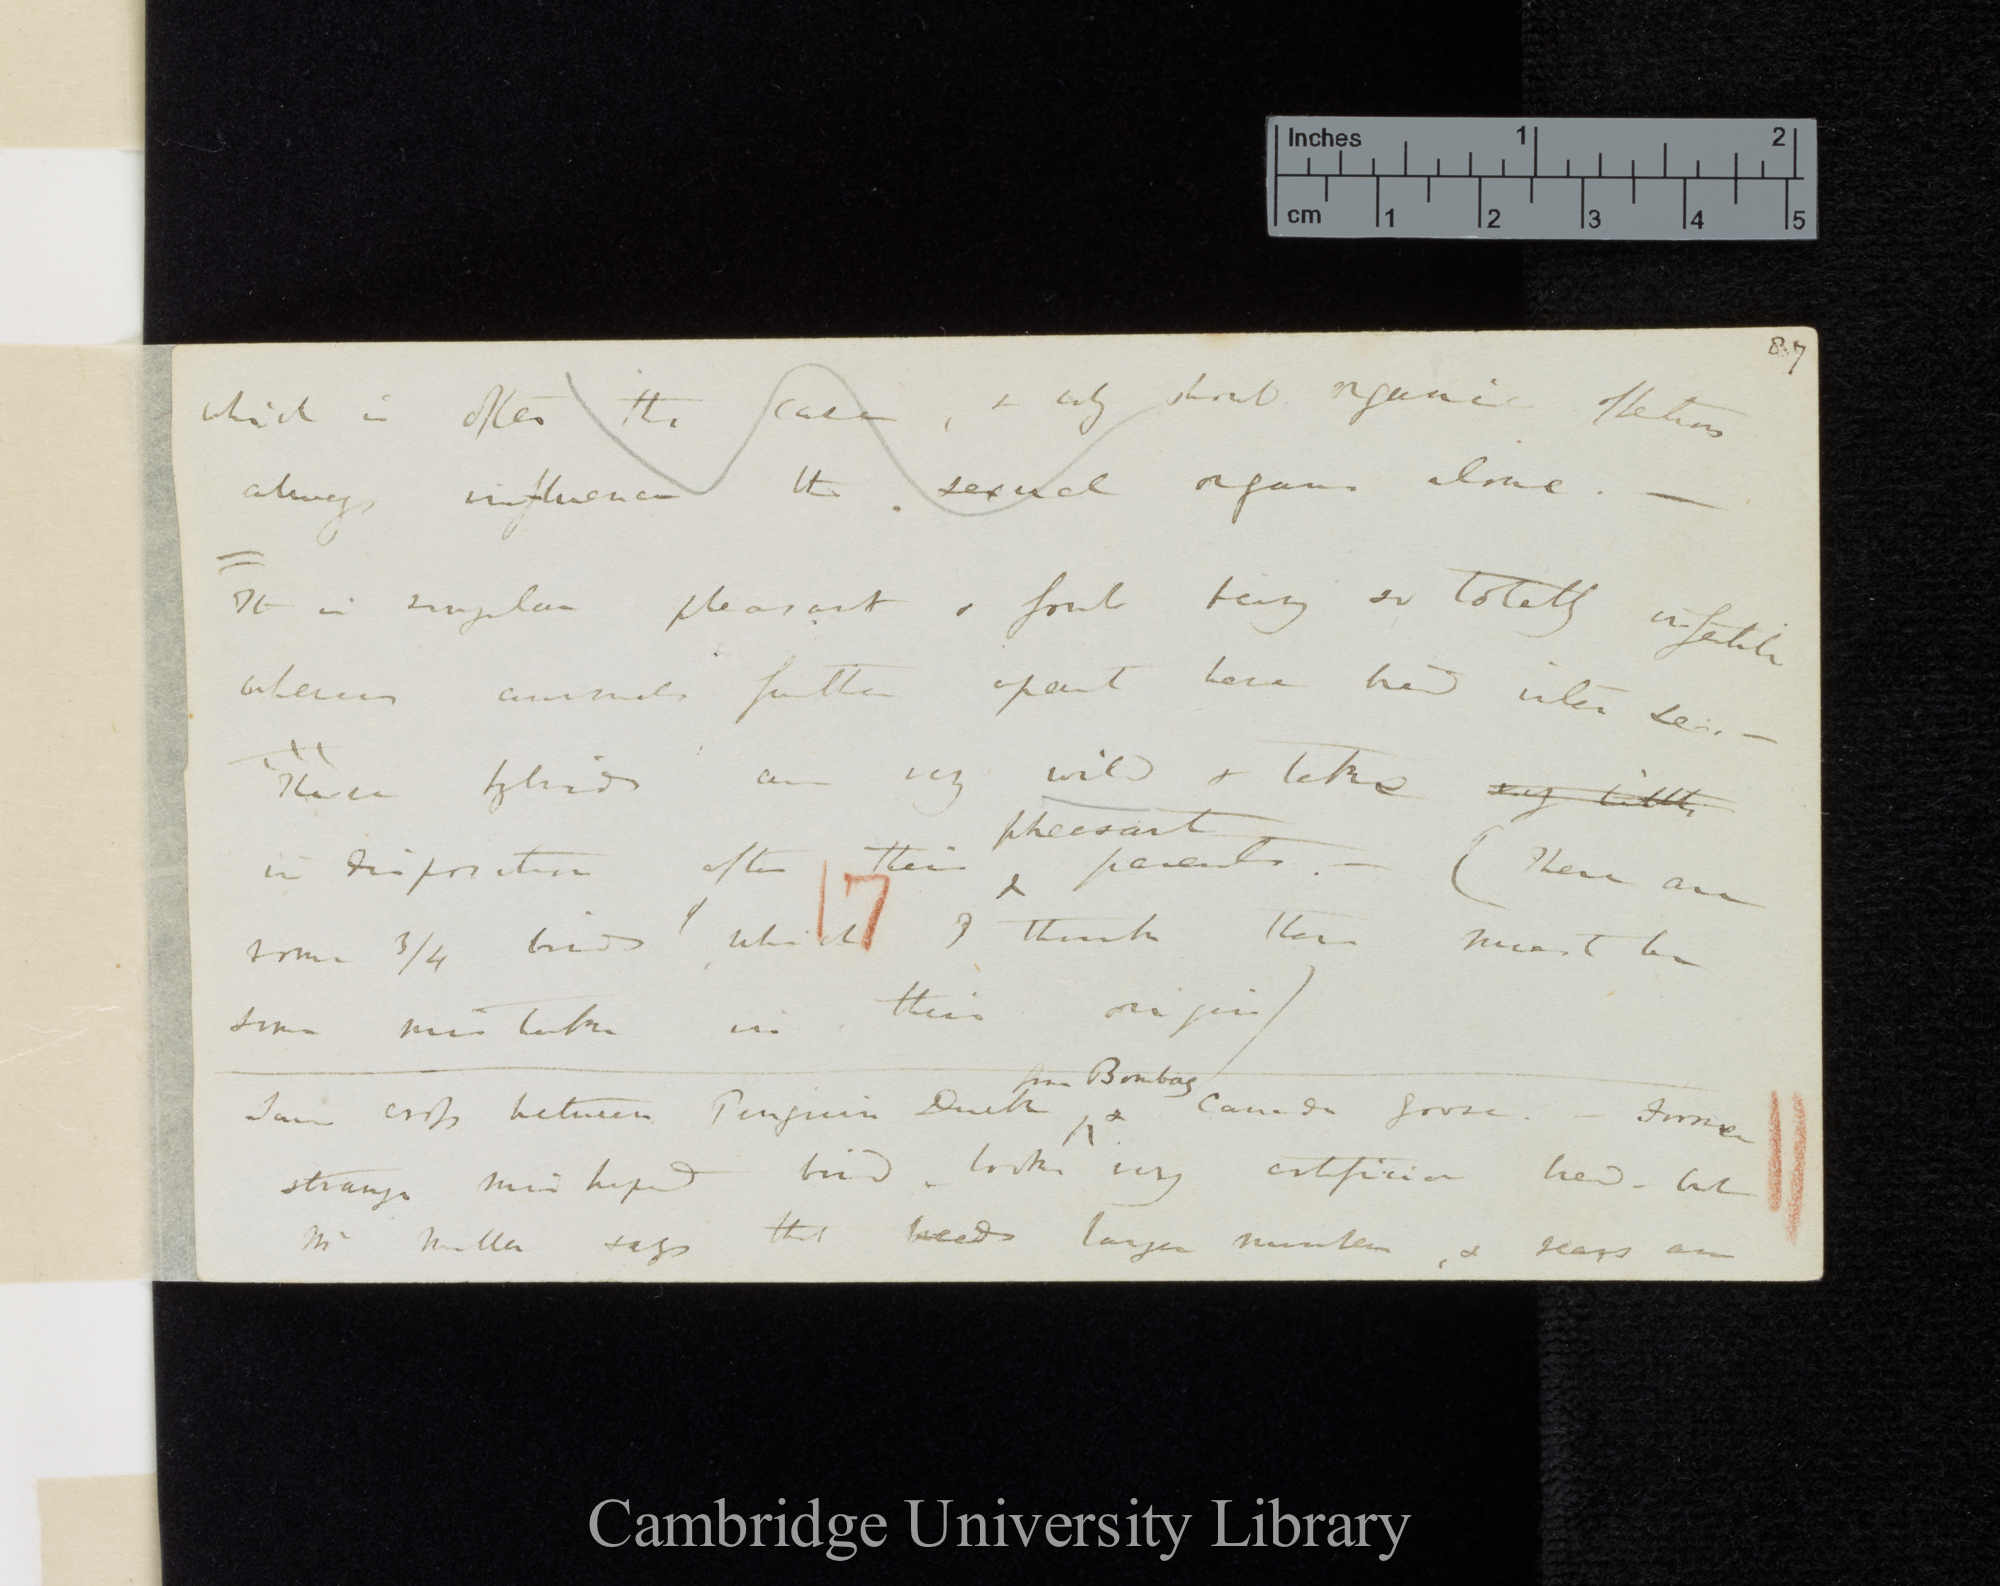 Inches 1 2
cm 1 2 3 4 5
87
which is often the case, & why should organic affections
always influence the sexual organs alone. —
It is singular pheasant & fowl being so totally infertile
whereas animals further apart have bred inter se. —
These hybrids are very wild & take very little
pheasant
in disposition after their & parents. — (There are
17
some 3/4 birds, which I think there must be
some mistake in their origin)
from Bombay
Saw cross between Penguin Duck & Canada goose. — Former
strange misshaped bird, looks very artificial bred. but
Mr Miller says that breeds larger number, & rears am
Cambridge University Library